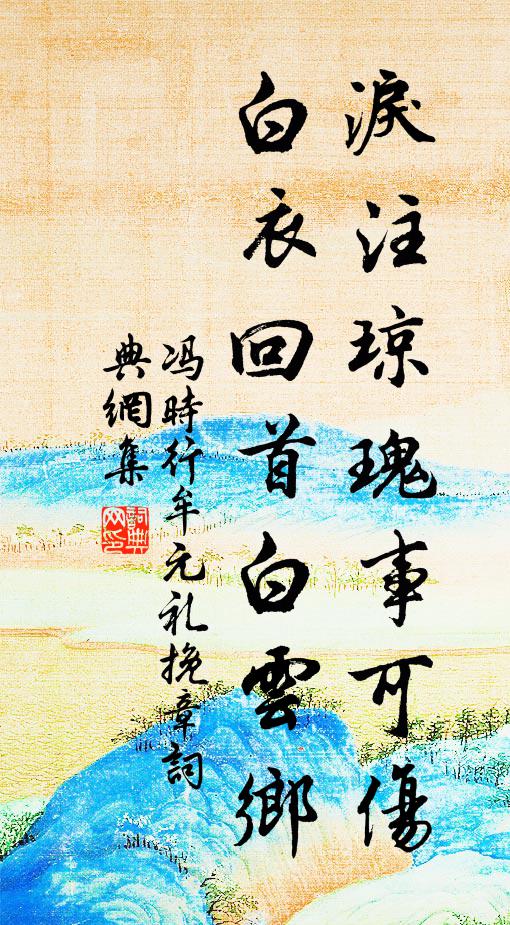 淚注瓊瑰事可傷
白衣回首白雲鄉
冯時行牟元礼挽章詞
典網集
詞典网印